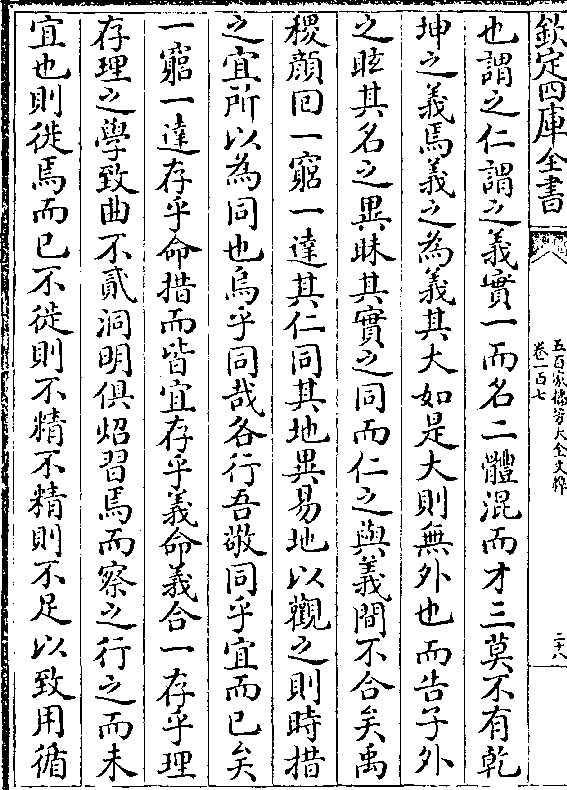 欽定四庫全書
五百家播芳大全文粹
卷一百七
二十八
也謂之仁謂之義實一而名二體混而才三莫不有乾
坤之義焉義之為義其大如是大則無外也而告子外
之眩其名之異昧其實之同而仁之與義間不合矣禹
稷顔回一窮一達其仁同其地異易地以觀之則時措
之宜所以為同也烏乎同哉各行吾敬同乎宜而已矣
一窮一達存乎命措而皆宜存乎義命義合一存乎理
存理之學致曲不貳洞明俱炤習焉而察之行之而未
宜也則徙焉而已不徙則不精不精則不足以致用循